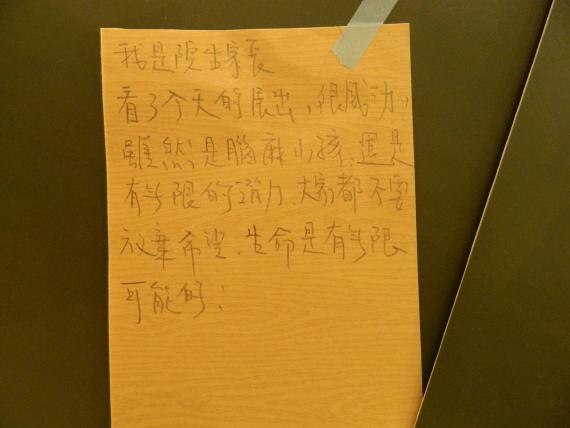 我是院生家長
看了今天的展出，很感动，
雖然是腦麻小孩，還是
有無限的潛力，大家都不要
放棄希望，生命是有無限
可能的！